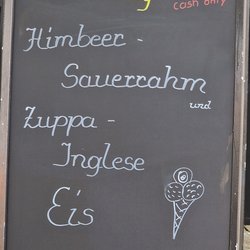 cash only
Himbeer -
Sauerrahm
und
Zuppa -
Inglese
Eis